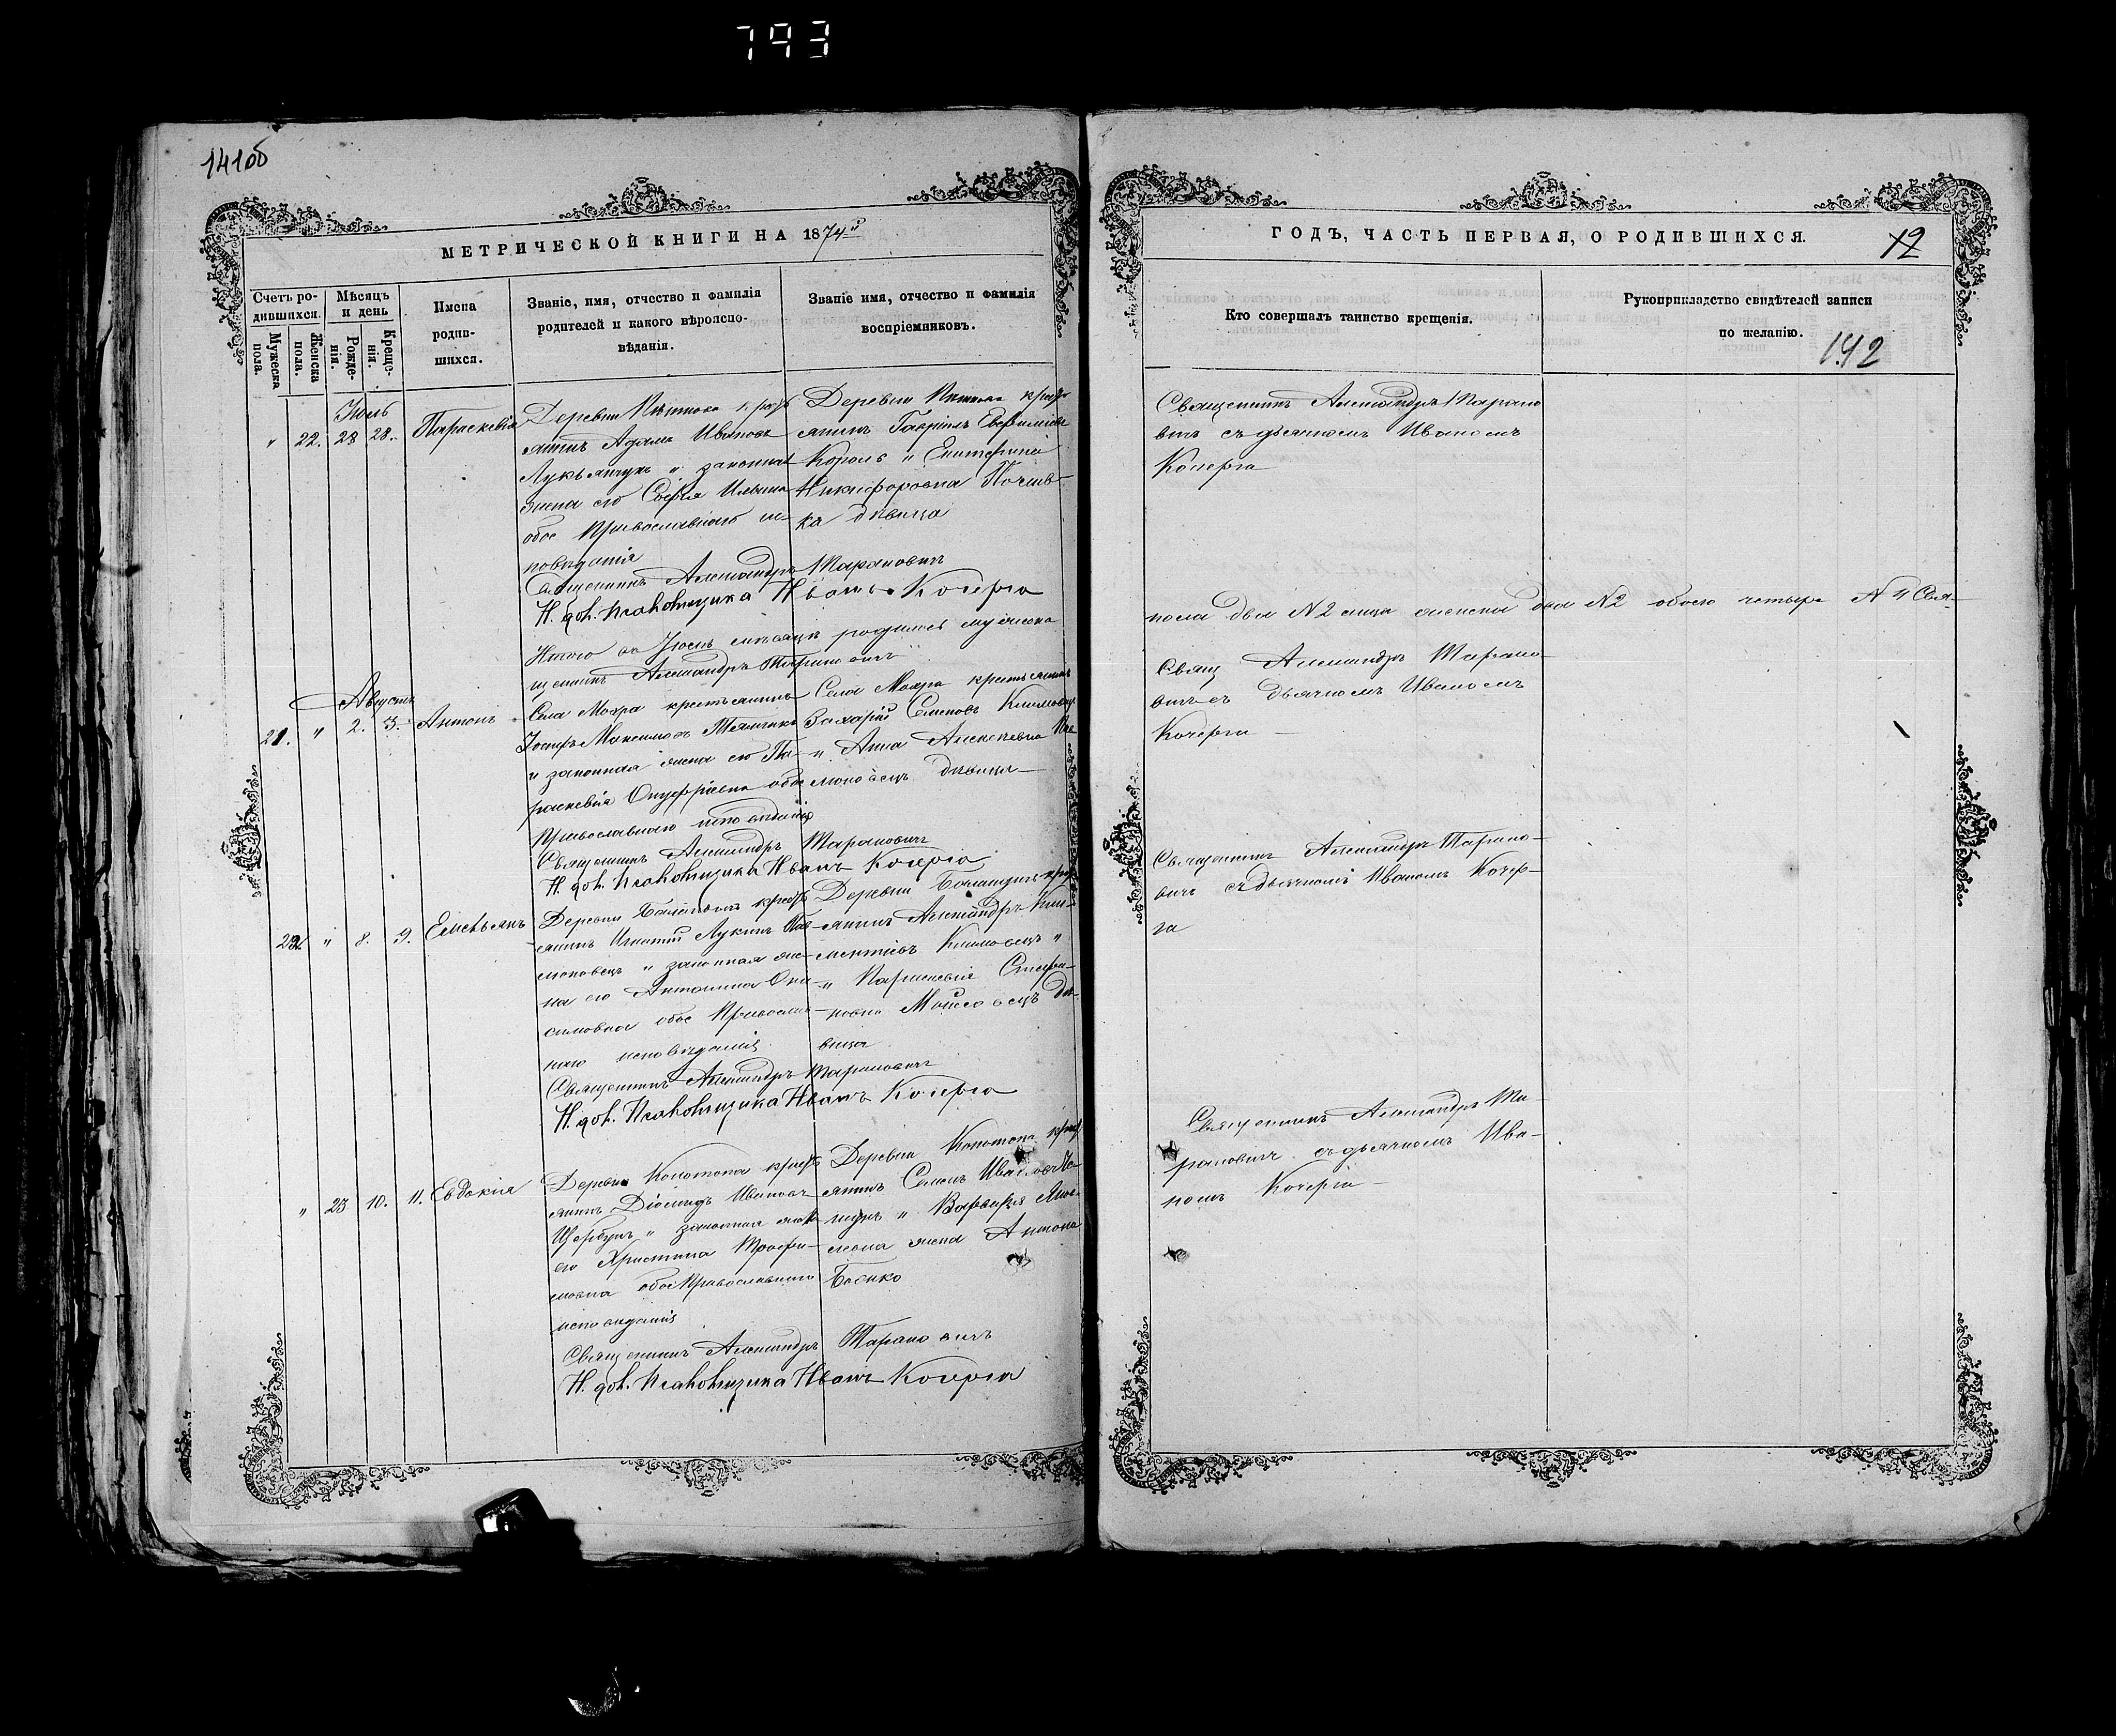 793
141об
МЕТРИЧЕСКОЙ КНИГИ НА 1874й
ГОДЪ, ЧАСТЬ ПЕРВАЯ, О РОДИВШИХСЯ.
12
142
Счетъ ро-
дившихся.
Мужеска
пола.
Женска
пола.
Мѣсяцъ
и день
Рожде-
нія.
Креще-
нія.
Имена
родив-
шихся.
Званіе, имя, отчество и фамилія
родителей и какого вѣроиспо-
вѣданія.
Званіе имя, отчество и фамилія
воспріемниковъ.
Кто совершалъ таинство крещенія.
Рукоприкладство свидѣтелей записи
по желанію.
Іюль
" 22. 28 28. Параскевія
Деревни крест
янинъ Адамъ Ивановъ
Лукьянчукъ и законная
жена его Софія Ильина
обое Православнаго ис-
повѣданія
Деревни крест
янинъ Гавріилъ Евфиміевъ
Король и Екатерина
Никифоровна
ка дѣвица
Священникъ Александръ Тарано
вичъ съ дьячкомъ Иваномъ
Кочерга
Священникъ Александръ Тарановичъ
И. дол. Псаломщика Иванъ Кочерга
Итого въ Іюль мѣсяцѣ родилось мужеска
пола два №2 женска два №2 обоего четыре №4 Свя-
щенникъ Александръ Тарановичъ
Августъ
21. " 2. 3. Антонъ
Села Мохра крестьянинъ
Іосифъ Максимовъ
и законная жена его Па-
раскевія Онуфріева обое
Православнаго исповѣданія
Села Мохра крестьянинъ
Захарій Семеновъ Климовец
и Анна Алексѣевна
дѣвица
Свящ Александръ Тарано
вичъ съ дьячкомъ Иваномъ
Кочерги
Священникъ Александръ Тарановичъ
И. дол. Псаломщика Иванъ Кочерга
22. " 8. 9. Емельянъ
Деревни крест
янинъ Игнатій Лукинъ
и законная же-
на его Антонина Они-
симовна обое Православ-
наго исповѣданія
Деревни крест
янинъ Александръ Кли-
ментіевъ Климовецъ
и Параскевія Стефа-
новна дѣ-
вица
Священникъ Александръ Тарано-
вичъ съ дьячкомъ Иваномъ Кочер-
га
Священникъ Александръ Тарановичъ
И. дол. Псаломщика Иванъ Кочерга
" 23 10. 11. Евдокія
Деревни Конотопа крест
янинъ Діомидъ Ивановъ
Щербунъ и законная жена
его Христина Трофи-
мовна обое Православнаго
исповѣданія
Деревни Конотопа крест
янинъ Семенъ Ивановъ
и Варвара
жена Антона
Боенко
Священникъ Александръ Та-
рановичъ съ дьячкомъ Ива-
номъ Кочерги
Священникъ Александръ Тарановичъ
И. дол. Псаломщика Иванъ Кочерга